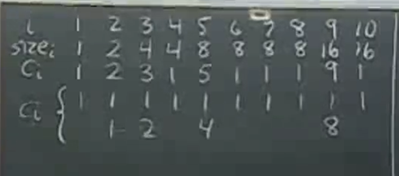 i 1 2 3 4 5 6 7 8 9 10
sizeᵢ 1 2 4 4 8 8 8 8 16 16
cᵢ 1 2 3 1 5 1 1 1 9 1
cᵢ { 1 1 1 1 1 1 1 1 1 1
1 2 4 8